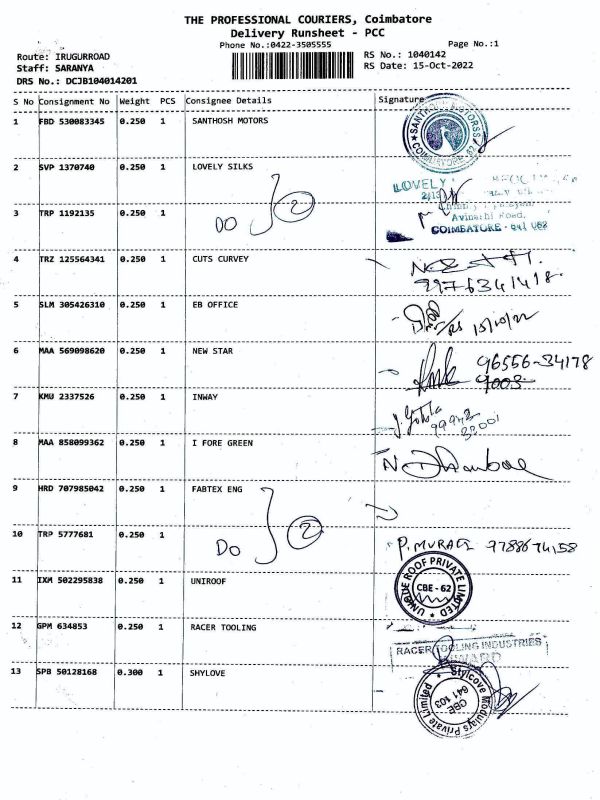 THE PROFESSIONAL COURIERS, Coimbatore
Delivery Runsheet - PCC
Phone No.:0422-3505555
Page No.:1
Route: IRUGURROAD
RS No.: 1040142
Staff: SARANYA
RS Date: 15-Oct-2022
DRS No.: DCJB104014201
S No Consignment No Weight PCS Consignee Details Signature
1 FBD 530083345 0.250 1 SANTHOSH MOTORS
COIMBATORE-62
2 SVP 1370740 0.250 1 LOVELY SILKS
LOVELY
3 TRP 1192135 0.250 1 DO 2
Avinashi Road,
COIMBATORE - 641 062
4 TRZ 125564341 0.250 1 CUTS CURVEY
9976341418
5 SLM 305426310 0.250 1 EB OFFICE
15/10/22
6 MAA 569098620 0.250 1 NEW STAR
96556-34178
7 KMU 2337526 0.250 1 INWAY
8 MAA 858099362 0.250 1 I FORE GREEN
9 HRD 707985042 0.250 1 FABTEX ENG
10 TRP 5777681 0.250 1 DO 2
P. MURAGE 9788674158
11 IXM 502295838 0.250 1 UNIROOF
ROOF PRIVATE LIMITED
CBE - 62
12 GPM 634853 0.250 1 RACER TOOLING
RACER TOOLING INDUSTRIES
INWARD
13 SPB 50128168 0.300 1 SHYLOVE
Stylcove Modulars Private Limited
CBE
641 103